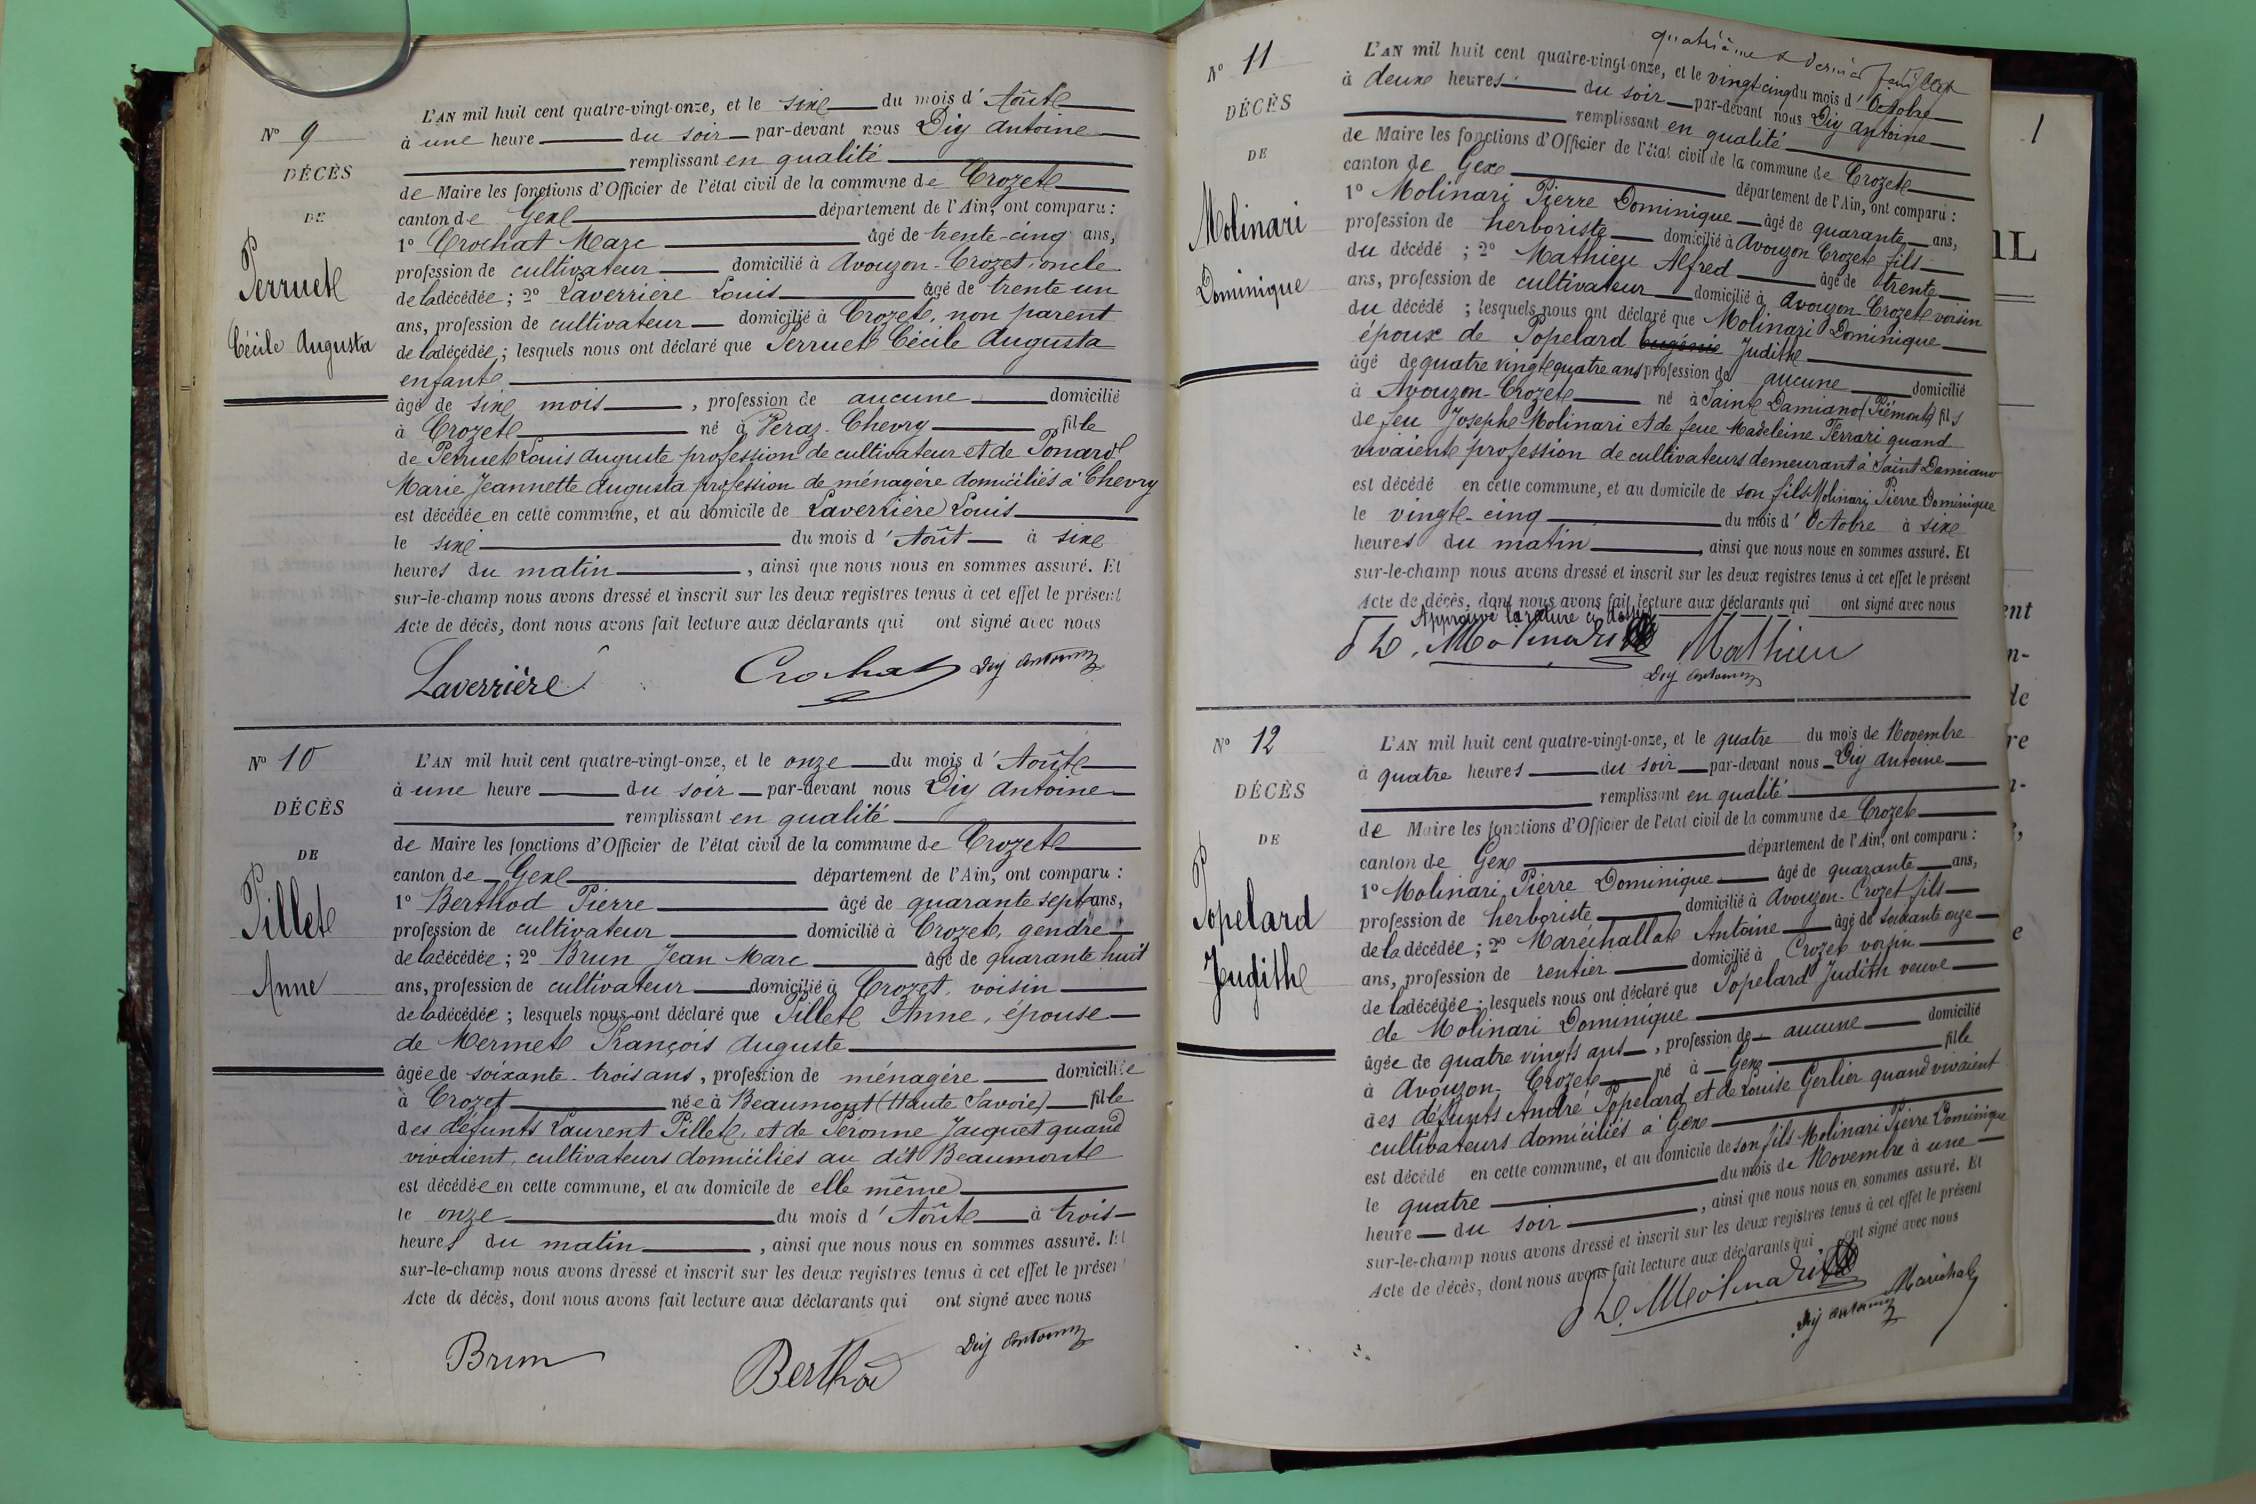 Nº 9
DÉCÈS
DE
Perruet
Cécile Augusta
L'AN mil huit cent quatre-vingt-onze, et le six du mois d'Août
à une heure du soir par-devant nous Diy Antoine
remplissant en qualité
de Maire les fonctions d'Officier de l'état civil de la commune de Crozet
canton de Gex département de l'Ain, ont comparu :
1º Crochat Marc âgé de trente-cinq ans,
profession de cultivateur domicilié à Avouzon-Crozet, oncle
de la décédée ; 2º Laverrière Louis âgé de trente un
ans, profession de cultivateur domicilié à Crozet, non parent
de la décédée ; lesquels nous ont déclaré que Perruet Cécile Augusta
enfant
âgé de six mois, profession de aucune domicilié
à Crozet né à Veraz-Chevry fille
de Perruet Louis Auguste profession de cultivateur et de Ponard
Marie Jeannette Augusta profession de ménagère domiciliés à Chevry
est décédée en cette commune, et au domicile de Laverrière Louis
le six du mois d'Août à six
heures du matin, ainsi que nous nous en sommes assuré. Et
sur-le-champ nous avons dressé et inscrit sur les deux registres tenus à cet effet le présent
Acte de décès, dont nous avons fait lecture aux déclarants qui ont signé avec nous
Laverrière Crochat Diy Antoine
Nº 10
DÉCÈS
DE
Pillet
Anne
L'AN mil huit cent quatre-vingt-onze, et le onze du mois d'Août
à une heure du soir par-devant nous Diy Antoine
remplissant en qualité
de Maire les fonctions d'Officier de l'état civil de la commune de Crozet
canton de Gex département de l'Ain, ont comparu :
1º Berthod Pierre âgé de quarante sept ans,
profession de cultivateur domicilié à Crozet, gendre
de la décédée ; 2º Brun Jean Marc âgé de quarante huit
ans, profession de cultivateur domicilié à Crozet, voisin
de la décédée ; lesquels nous ont déclaré que Pillet Anne, épouse
de Mermet François Auguste
âgée de soixante-trois ans, profession de ménagère domiciliée
à Crozet née à Beaumont (Haute Savoie) fille
des défunts Laurent Pillet, et de Péronne Jacquet quand
vivaient, cultivateurs domiciliés au dit Beaumont
est décédée en cette commune, et au domicile de elle même
le onze du mois d'Août à trois
heures du matin, ainsi que nous nous en sommes assuré. Et
sur-le-champ nous avons dressé et inscrit sur les deux registres tenus à cet effet le présent
Acte de décès, dont nous avons fait lecture aux déclarants qui ont signé avec nous
Brun Berthod Diy Antoine
quatrième & dernier feuillet
Nº 11
DÉCÈS
DE
Molinari
Dominique
L'AN mil huit cent quatre-vingt-onze, et le vingt cinq du mois d'Octobre
à deux heures du soir par-devant nous Diy Antoine
remplissant en qualité
de Maire les fonctions d'Officier de l'état civil de la commune de Crozet
canton de Gex département de l'Ain, ont comparu :
1º Molinari Pierre Dominique âgé de quarante ans,
profession de herboriste domicilié à Avouzon Crozet fils
du décédé ; 2º Mathieu Alfred âgé de trente
ans, profession de cultivateur domicilié à Avouzon Crozet voisin
du décédé ; lesquels nous ont déclaré que Molinari Dominique
époux de Popelard Eugénie Judith
âgé de quatre vingt quatre ans profession de aucune domicilié
à Avouzon-Crozet né à Saint Damiano (Piémont) fils
de feu Joseph Molinari et de feue Madeleine Ferrari quand
vivaient profession de cultivateurs demeurant à Saint Damiano
est décédé en cette commune, et au domicile de son fils Molinari Pierre Dominique
le vingt-cinq du mois d'Octobre à six
heures du matin, ainsi que nous nous en sommes assuré. Et
sur-le-champ nous avons dressé et inscrit sur les deux registres tenus à cet effet le présent
Acte de décès, dont nous avons fait lecture aux déclarants qui ont signé avec nous
Approuvé la rature ci-dessus
Molinari Mathieu
Diy Antoine
Nº 12
DÉCÈS
DE
Popelard
Judith
L'AN mil huit cent quatre-vingt-onze, et le quatre du mois de Novembre
à quatre heures du soir par-devant nous Diy Antoine
remplissant en qualité
de Maire les fonctions d'Officier de l'état civil de la commune de Crozet
canton de Gex département de l'Ain, ont comparu :
1º Molinari Pierre Dominique âgé de quarante ans,
profession de herboriste domicilié à Avouzon-Crozet fils
de la décédée ; 2º Maréchallat Antoine âgé de soixante onze
ans, profession de rentier domicilié à Crozet voisin
de la décédée ; lesquels nous ont déclaré que Popelard Judith veuve
de Molinari Dominique
âgée de quatre vingts ans, profession de aucune domicilié
à Avouzon-Crozet né à Gex fille
des défunts André Popelard et de Louise Gerlier quand vivaient
cultivateurs domiciliés à Gex
est décédé en cette commune, et au domicile de son fils Molinari Pierre Dominique
le quatre du mois de Novembre à une
heure du soir, ainsi que nous nous en sommes assuré. Et
sur-le-champ nous avons dressé et inscrit sur les deux registres tenus à cet effet le présent
Acte de décès, dont nous avons fait lecture aux déclarants qui ont signé avec nous
Molinari Maréchal
Diy Antoine
1